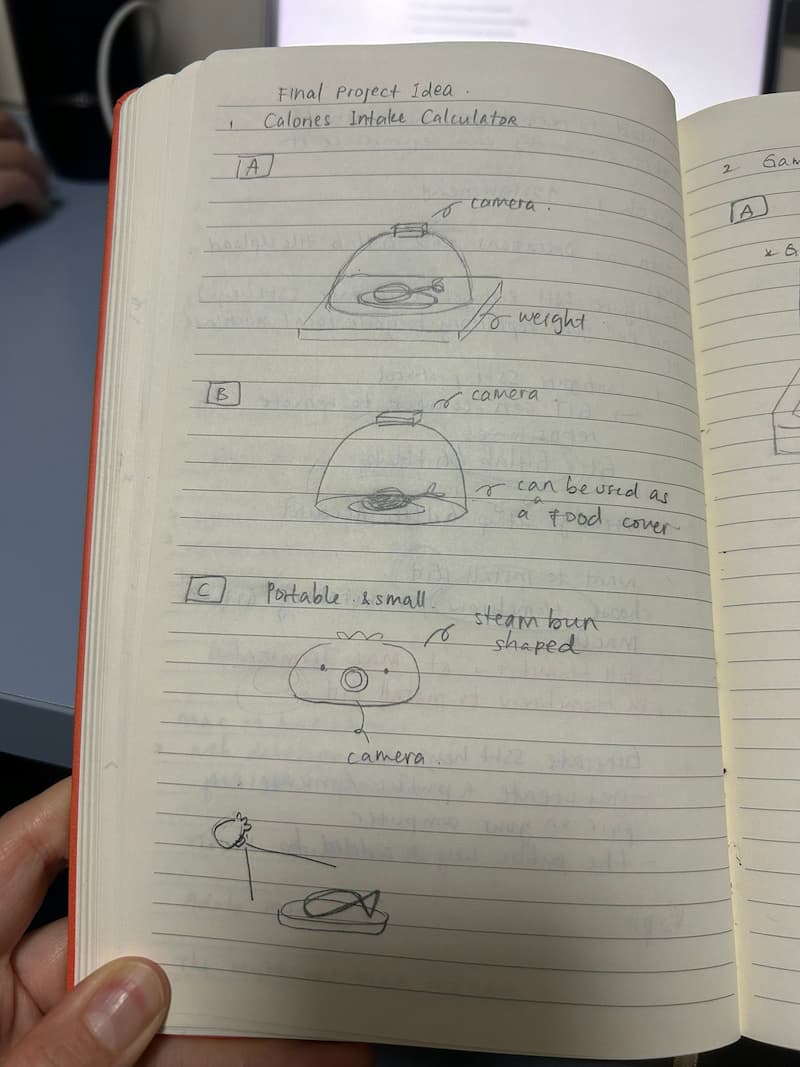 Final Project Idea.
1 Calories Intake Calculator
A
camera.
weight
B
camera
can be used as
a food cover
C Portable & small.
steam bun
shaped
camera.
2 Gam
A
* G